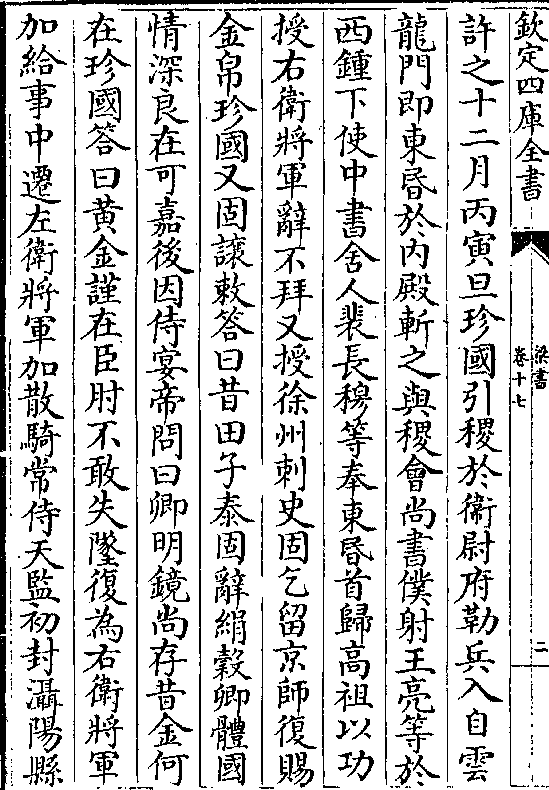 欽定四庫全書
梁書
卷十七
二
許之十二月丙寅旦珍國引稷於衞尉府勒兵入自雲
龍門即東昏於内殿斬之與稷會尚書僕射王亮等於
西鍾下使中書舍人裴長穆等奉東昏首歸高祖以功
授右衛將軍辭不拜又授徐州刺史固乞留京師復賜
金帛珍國又固讓敕答曰昔田子泰固辭絹穀卿體國
情深良在可嘉後因侍宴帝問曰卿明鏡尚存昔金何
在珍國答曰黄金謹在臣肘不敢失墜復為右衛將軍
加給事中遷左衛將軍加散騎常侍天監初封灄陽縣